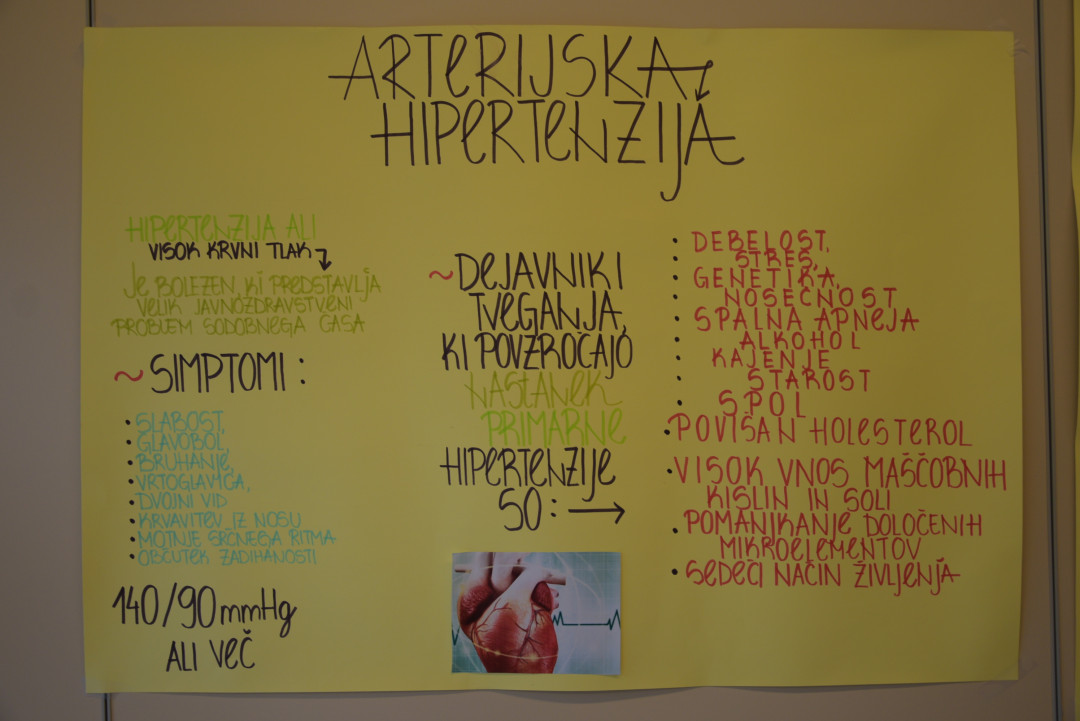 ARTERIJSKA
HIPERTENZIJA
HIPERTENZIJA ALI
VISOK KRVNI TLAK
JE BOLEZEN, KI PREDSTAVLJA
VELIK JAVNOZDRAVSTVENI
PROBLEM SODOBNEGA ČASA
~ SIMPTOMI:
• SLABOST,
• GLAVOBOL,
• BRUHANJE,
• VRTOGLAVICA,
• DVOJNI VID
• KRVAVITEV IZ NOSU
• MOTNJE SRČNEGA RITMA
• OBČUTEK ZADIHANOSTI
140/90 mmHg
ALI VEČ
~ DEJAVNIKI
TVEGANJA,
KI POVZROČAJO
NASTANEK
PRIMARNE
HIPERTENZIJE
SO: →
• DEBELOST,
• STRES,
• GENETIKA,
• NOSEČNOST
• SPALNA APNEJA
• ALKOHOL
• KAJENJE
• STAROST
• SPOL
• POVIŠAN HOLESTEROL
• VISOK VNOS MAŠČOBNIH
KISLIN IN SOLI
• POMANJKANJE DOLOČENIH
MIKROELEMENTOV
• SEDEČI NAČIN ŽIVLJENJA